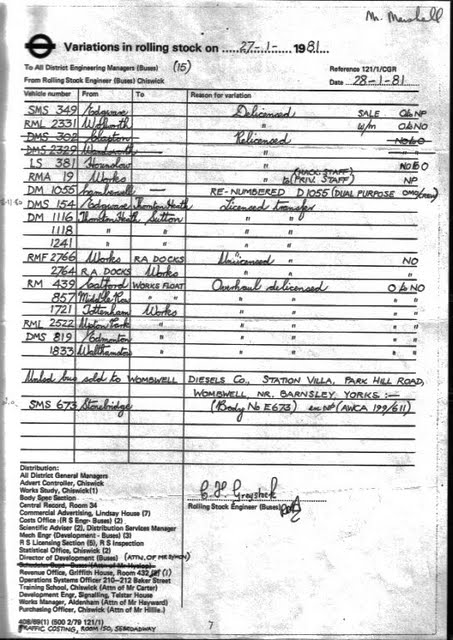 Mr. Marshall
Variations in rolling stock on ..... 27-1- ..... 1981.
To All District Engineering Managers (Buses) (15) Reference 121/1/CGR
From Rolling Stock Engineer (Buses) Chiswick Date 28-1-81
Vehicle number From To Reason for variation
SMS 349 Edgware Delicensed SALE O to NP
RML 2331 Walworth " w/n O to NO
DMS 302 Clapton Relicensed NO to O
DMS 2329 Wandsworth " "
LS 381 Hounslow " NO to O
RMA 19 Works " to (HACK: STAFF) (PRIV. STAFF) NP
DM 1055 Camberwell — RE-NUMBERED D1055 (DUAL PURPOSE OMO/CREW)
DMS 154 Edgware Thornton Heath Licensed transfer
DM 1116 Thornton Heath Sutton "
1118 " " "
1241 " " "
RMF 2766 Works RA DOCKS Unlicensed " NO
2764 R.A. DOCKS Works " " "
RM 439 Catford WORKS FLOAT Overhaul delicensed O to NO
857 Middle Row " " " " "
1721 Tottenham Works " " "
RML 2522 Upton Park " " " "
DMS 819 Edmonton " " " "
1833 Walthamstow " " " "
Unlcsd bus sold to WOMBWELL DIESELS Co., STATION VILLA, PARK HILL ROAD,
WOMBWELL, NR. BARNSLEY, YORKS :—
SMS 673 Stonebridge (Body No E673) ex NP (AWCA 199/611)
Distribution:
All District General Managers
Advert Controller, Chiswick
Works Study, Chiswick(1)
Body Spec Section
Central Record, Room 34
Commercial Advertising, Lindsay House (7)
Costs Office (R S Engr- Buses) (2)
Scientific Adviser (2), Distribution Services Manager
Mech Engr (Development- Buses) (3)
R S Licensing Section (5), R S Inspection
Statistical Office, Chiswick (2)
Director of Development (Buses) (ATTN. OF MR BYNON)
Schedules Supt - Buses (Attn of Mr Hyslop)
Revenue Office, Griffith House, Room 432 (1)
Operations Systems Officer 210–212 Baker Street
Training School, Chiswick (Attn of Mr Carter)
Development Engr, Signalling, Telstar House
Works Manager, Aldenham (Attn of Mr Hayward)
Purchasing Officer, Chiswick (Attn of Mr Hillie.)
Rolling Stock Engineer (Buses)
408/69(1) (500 2/79 121/1) 7
TRAFFIC COSTING, ROOM 150, 55 BROADWAY